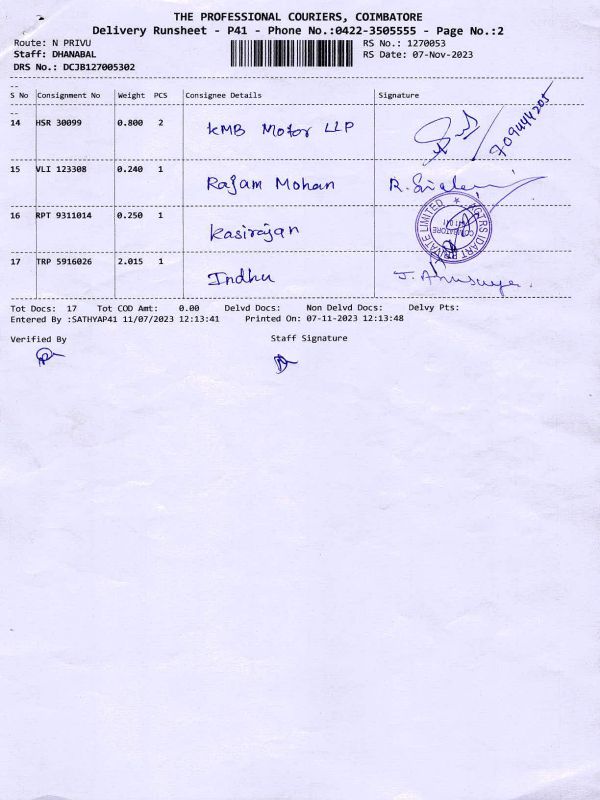 THE PROFESSIONAL COURIERS, COIMBATORE
Delivery Runsheet - P41 - Phone No.:0422-3505555 - Page No.:2
Route: N PRIVU
RS No.: 1270053
Staff: DHANABAL
RS Date: 07-Nov-2023
DRS No.: DCJB127005302
S No Consignment No Weight PCS Consignee Details Signature
14 HSR 30099 0.800 2 KMB Motor LLP
15 VLI 123308 0.240 1 Rajam Mohan
16 RPT 9311014 0.250 1 Kasirajan
17 TRP 5916026 2.015 1 Indhu J. Anusuya.
Tot Docs: 17 Tot COD Amt: 0.00 Delvd Docs: Non Delvd Docs: Delvy Pts:
Entered By :SATHYAP41 11/07/2023 12:13:41 Printed On: 07-11-2023 12:13:48
Verified By Staff Signature